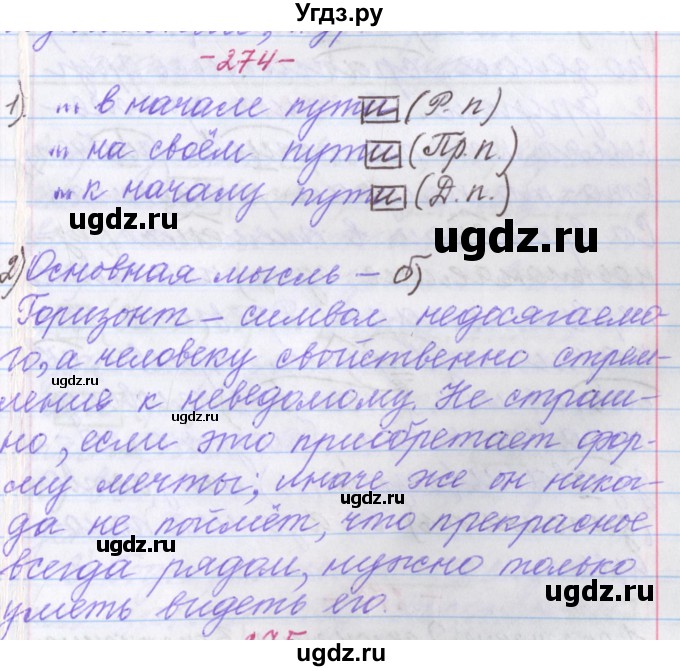 Угдз.ру
-274-
1). в начале пути (Р.п)
на своём пути (Пр.п.)
к началу пути (Д.п.)
ugdz.ru
ugdz.ru
2) Основная мысль – б)
Горизонт – символ недосягаемо-
го, а человеку свойственно стрем-
ugdz.ru
ление к неведомому. Не страш-
ugdz.ru
но, если это приобретает фор-
му мечты; иначе же он нико-
ugdz.ru
да не поймёт, что прекрасное
ugdz.ru
всегда рядом, нужно только
уметь видеть его.
ugdz.ru
ugdz.ru
275
ugdz.ru